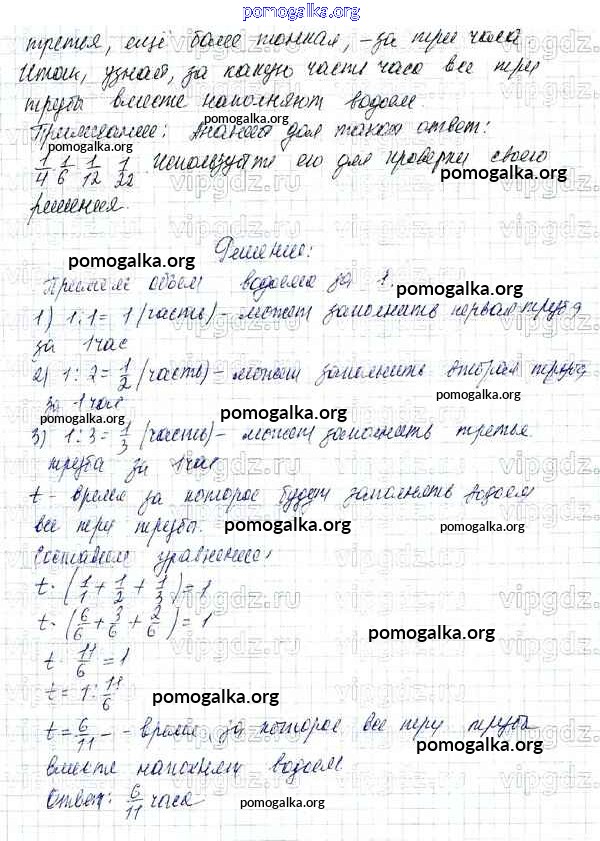 pomogalka.org
третья, ещё более тонкая, – за три часа
Итак, узнай, за какую часть часа все три
трубы вместе наполняют водоем.
Примечание: Анания дал такой ответ:
1/4 1/6 1/12 1/22. Используйте его для проверки своего
решения.
pomogalka.org
pomogalka.org
Решение:
pomogalka.org
Примем объем водоема за 1.
1) 1:1= 1 (часть) – может заполнить первая труба
за 1 час
2) 1:2= 1/2 (часть) – может заполнить вторая труба
за 1 час
pomogalka.org
pomogalka.org
3) 1:3= 1/3 (часть) – может заполнять третья
труба за 1 час
t - время за которое будут заполнять водоем
все три трубы.
pomogalka.org
pomogalka.org
Составим уравнение:
t·(1/1+1/2+1/3)=1
t·(6/6+3/6+2/6)=1
pomogalka.org
t·11/6=1
t=1:11/6
pomogalka.org
t=6/11 - - время, за которое все три трубы
pomogalka.org
вместе наполнят водоем
Ответ: 6/11 часа
pomogalka.org
pomogalka.org
vipgdz.ru